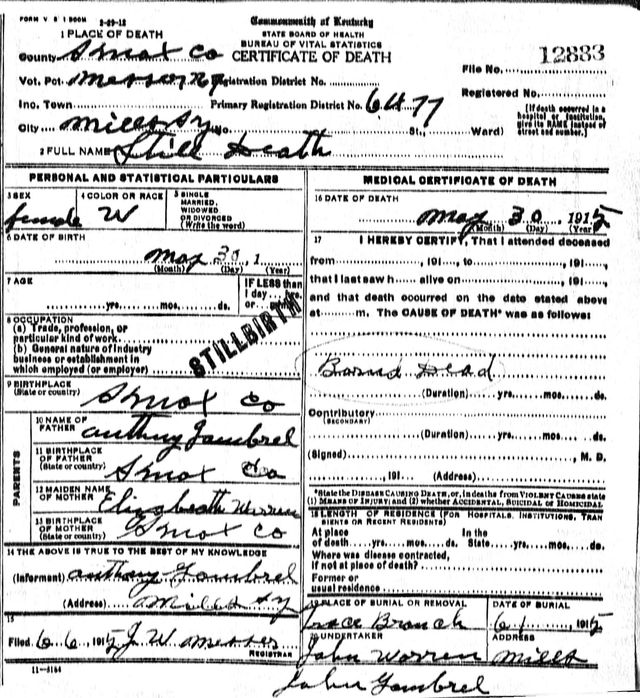 FORM V S 1 500M 2-29-12
Commonwealth of Kentucky
STATE BOARD OF HEALTH
BUREAU OF VITAL STATISTICS
CERTIFICATE OF DEATH
1 PLACE OF DEATH
County Knox Co
File No. 12883
Vot. Pct. Messer Registration District No.
Registered No.
Inc. Town Primary Registration District No. 6477
[If death occurred in a hospital or institution, give its NAME instead of street and number.]
City Mills Ky No. St., Ward)
2 FULL NAME Still Death
PERSONAL AND STATISTICAL PARTICULARS
3 SEX female
4 COLOR OR RACE W
5 SINGLE MARRIED, WIDOWED OR DIVORCED (Write the word)
6 DATE OF BIRTH
May 30, 1
(Month) (Day) (Year)
7 AGE
yrs. mos. ds.
IF LESS than 1 day hrs. or
STILLBIRTH
8 OCCUPATION
(a) Trade, profession, or particular kind of work
(b) General nature of industry business or establishment in which employed (or employer)
9 BIRTHPLACE (State or country) Knox Co
PARENTS
10 NAME OF FATHER Anthny Gambrel
11 BIRTHPLACE OF FATHER (State or country) Knox Co
12 MAIDEN NAME OF MOTHER Elizabeath Warren
13 BIRTHPLACE OF MOTHER (State or country) Knox Co
14 THE ABOVE IS TRUE TO THE BEST OF MY KNOWLEDGE
(Informant) Anthny Gambrel
(Address) Mills Ky
15
Filed 6 6, 1915 J W Messer
REGISTRAR
11-3184
MEDICAL CERTIFICATE OF DEATH
16 DATE OF DEATH
May 30 1915
(Month) (Day) (Year)
17 I HEREBY CERTIFY, That I attended deceased
from , 191 , to , 191 ,
that I last saw h alive on , 191 ,
and that death occurred on the date stated above
at m. The CAUSE OF DEATH* was as follows:
Bornd Dead
(Duration) yrs. mos. ds.
Contributory (SECONDARY)
(Duration) yrs. mos. ds.
(Signed) , M. D.
, 191 (Address)
*State the DISEASE CAUSING DEATH, or, in deaths from VIOLENT CAUSES state (1) MEANS OF INJURY; and (2) whether ACCIDENTAL, SUICIDAL OF HOMICIDAL
18 LENGTH OF RESIDENCE (FOR HOSPITALS, INSTITUTIONS, TRANSIENTS OR RECENT RESIDENTS)
At place of death yrs. mos. ds. In the State yrs. mos. ds.
Where was disease contracted, if not at place of death?
Former or usual residence
19 PLACE OF BURIAL OR REMOVAL Branch
DATE OF BURIAL 6 1, 1915
20 UNDERTAKER John Warren
ADDRESS Mills
John Gambrel